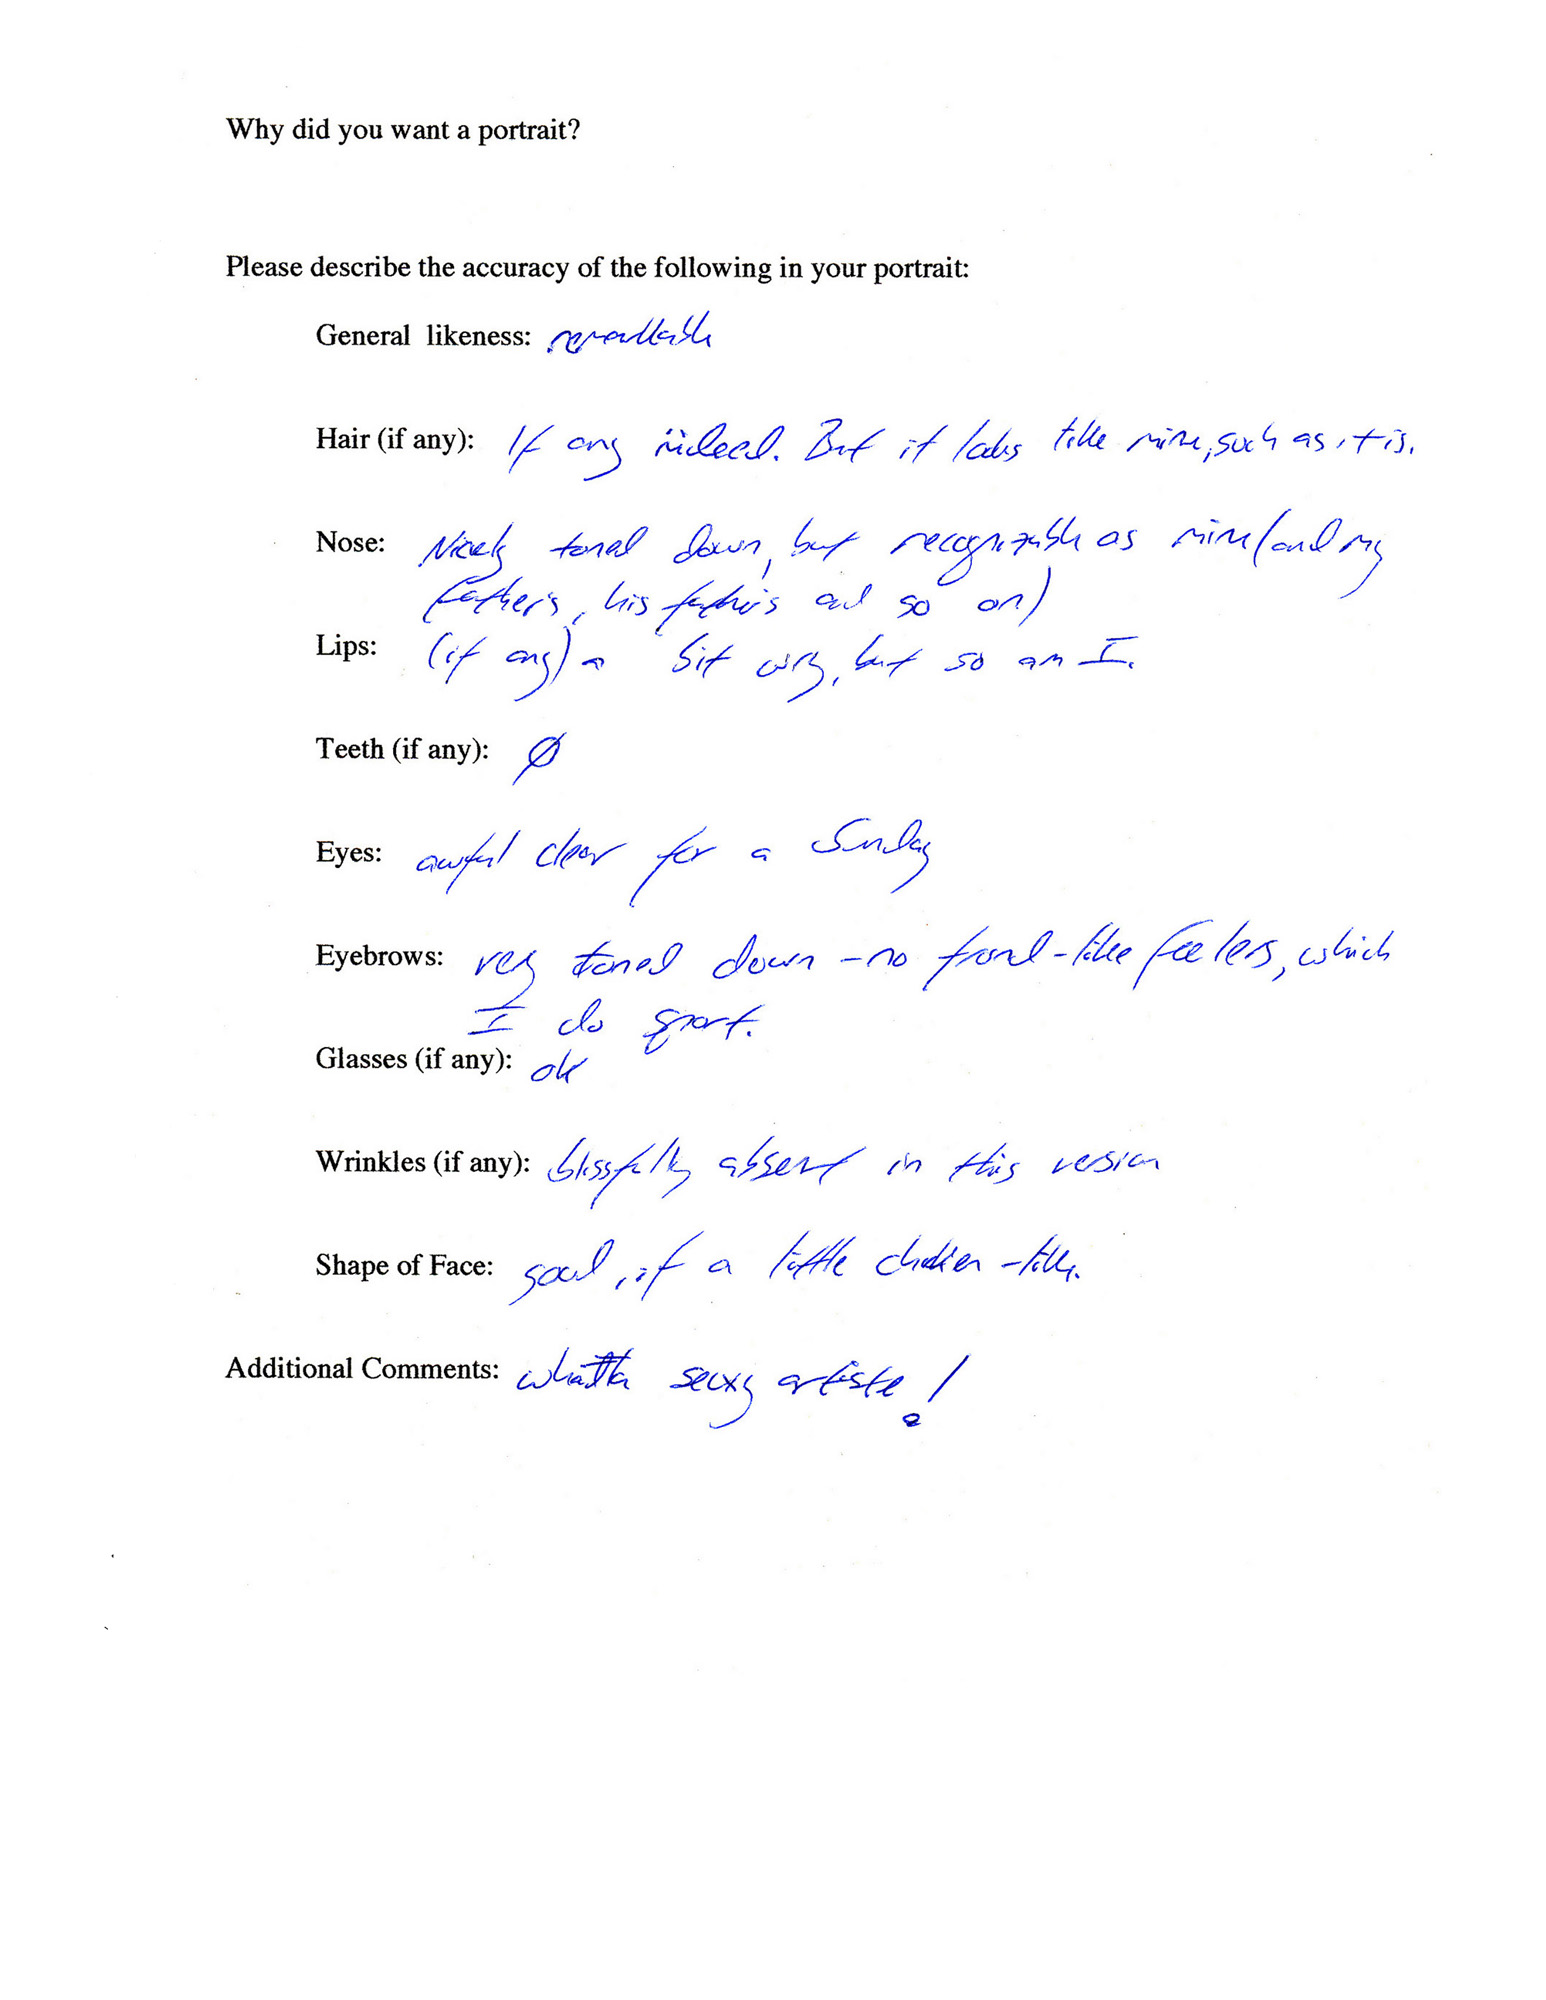 Why did you want a portrait?
Please describe the accuracy of the following in your portrait:
General likeness: remarkable
Hair (if any): If any indeed. But it looks like mine, such as it is.
Nose: Nicely toned down, but recognizable as mine (and my
father's, his father's and so on)
Lips: (if any) a bit wry, but so am I.
Teeth (if any): Ø
Eyes: awful clear for a Sunday
Eyebrows: very toned down - no frond-like feelers, which
I do sport.
Glasses (if any): ok
Wrinkles (if any): blissfully absent in this version
Shape of Face: good, if a little chicken-like.
Additional Comments: sexy artiste!